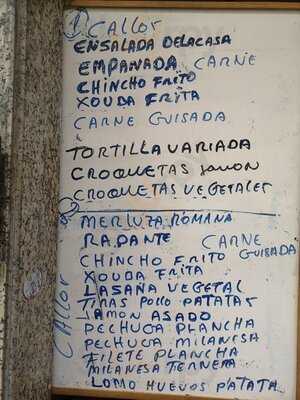 1) CALLOS
ENSALADA DELACASA
EMPANADA CARNE
CHINCHO FRITO
XOUDA FRITA
CARNE GUISADA
TORTILLA VARIADA
CROQUETAS JAMON
CROQUETAS VEGETALES
2) MERLUZA ROMANA
RAPANTE CARNE GUISADA
CHINCHO FRITO
XOUDA FRITA
LASAÑA VEGETAL
TIRAS POLLO PATATAS
JAMON ASADO
PECHUGA PLANCHA
PECHUGA MILANESA
FILETE PLANCHA
MILANESA TERNERA
LOMO HUEVOS PATATA
CALLOS